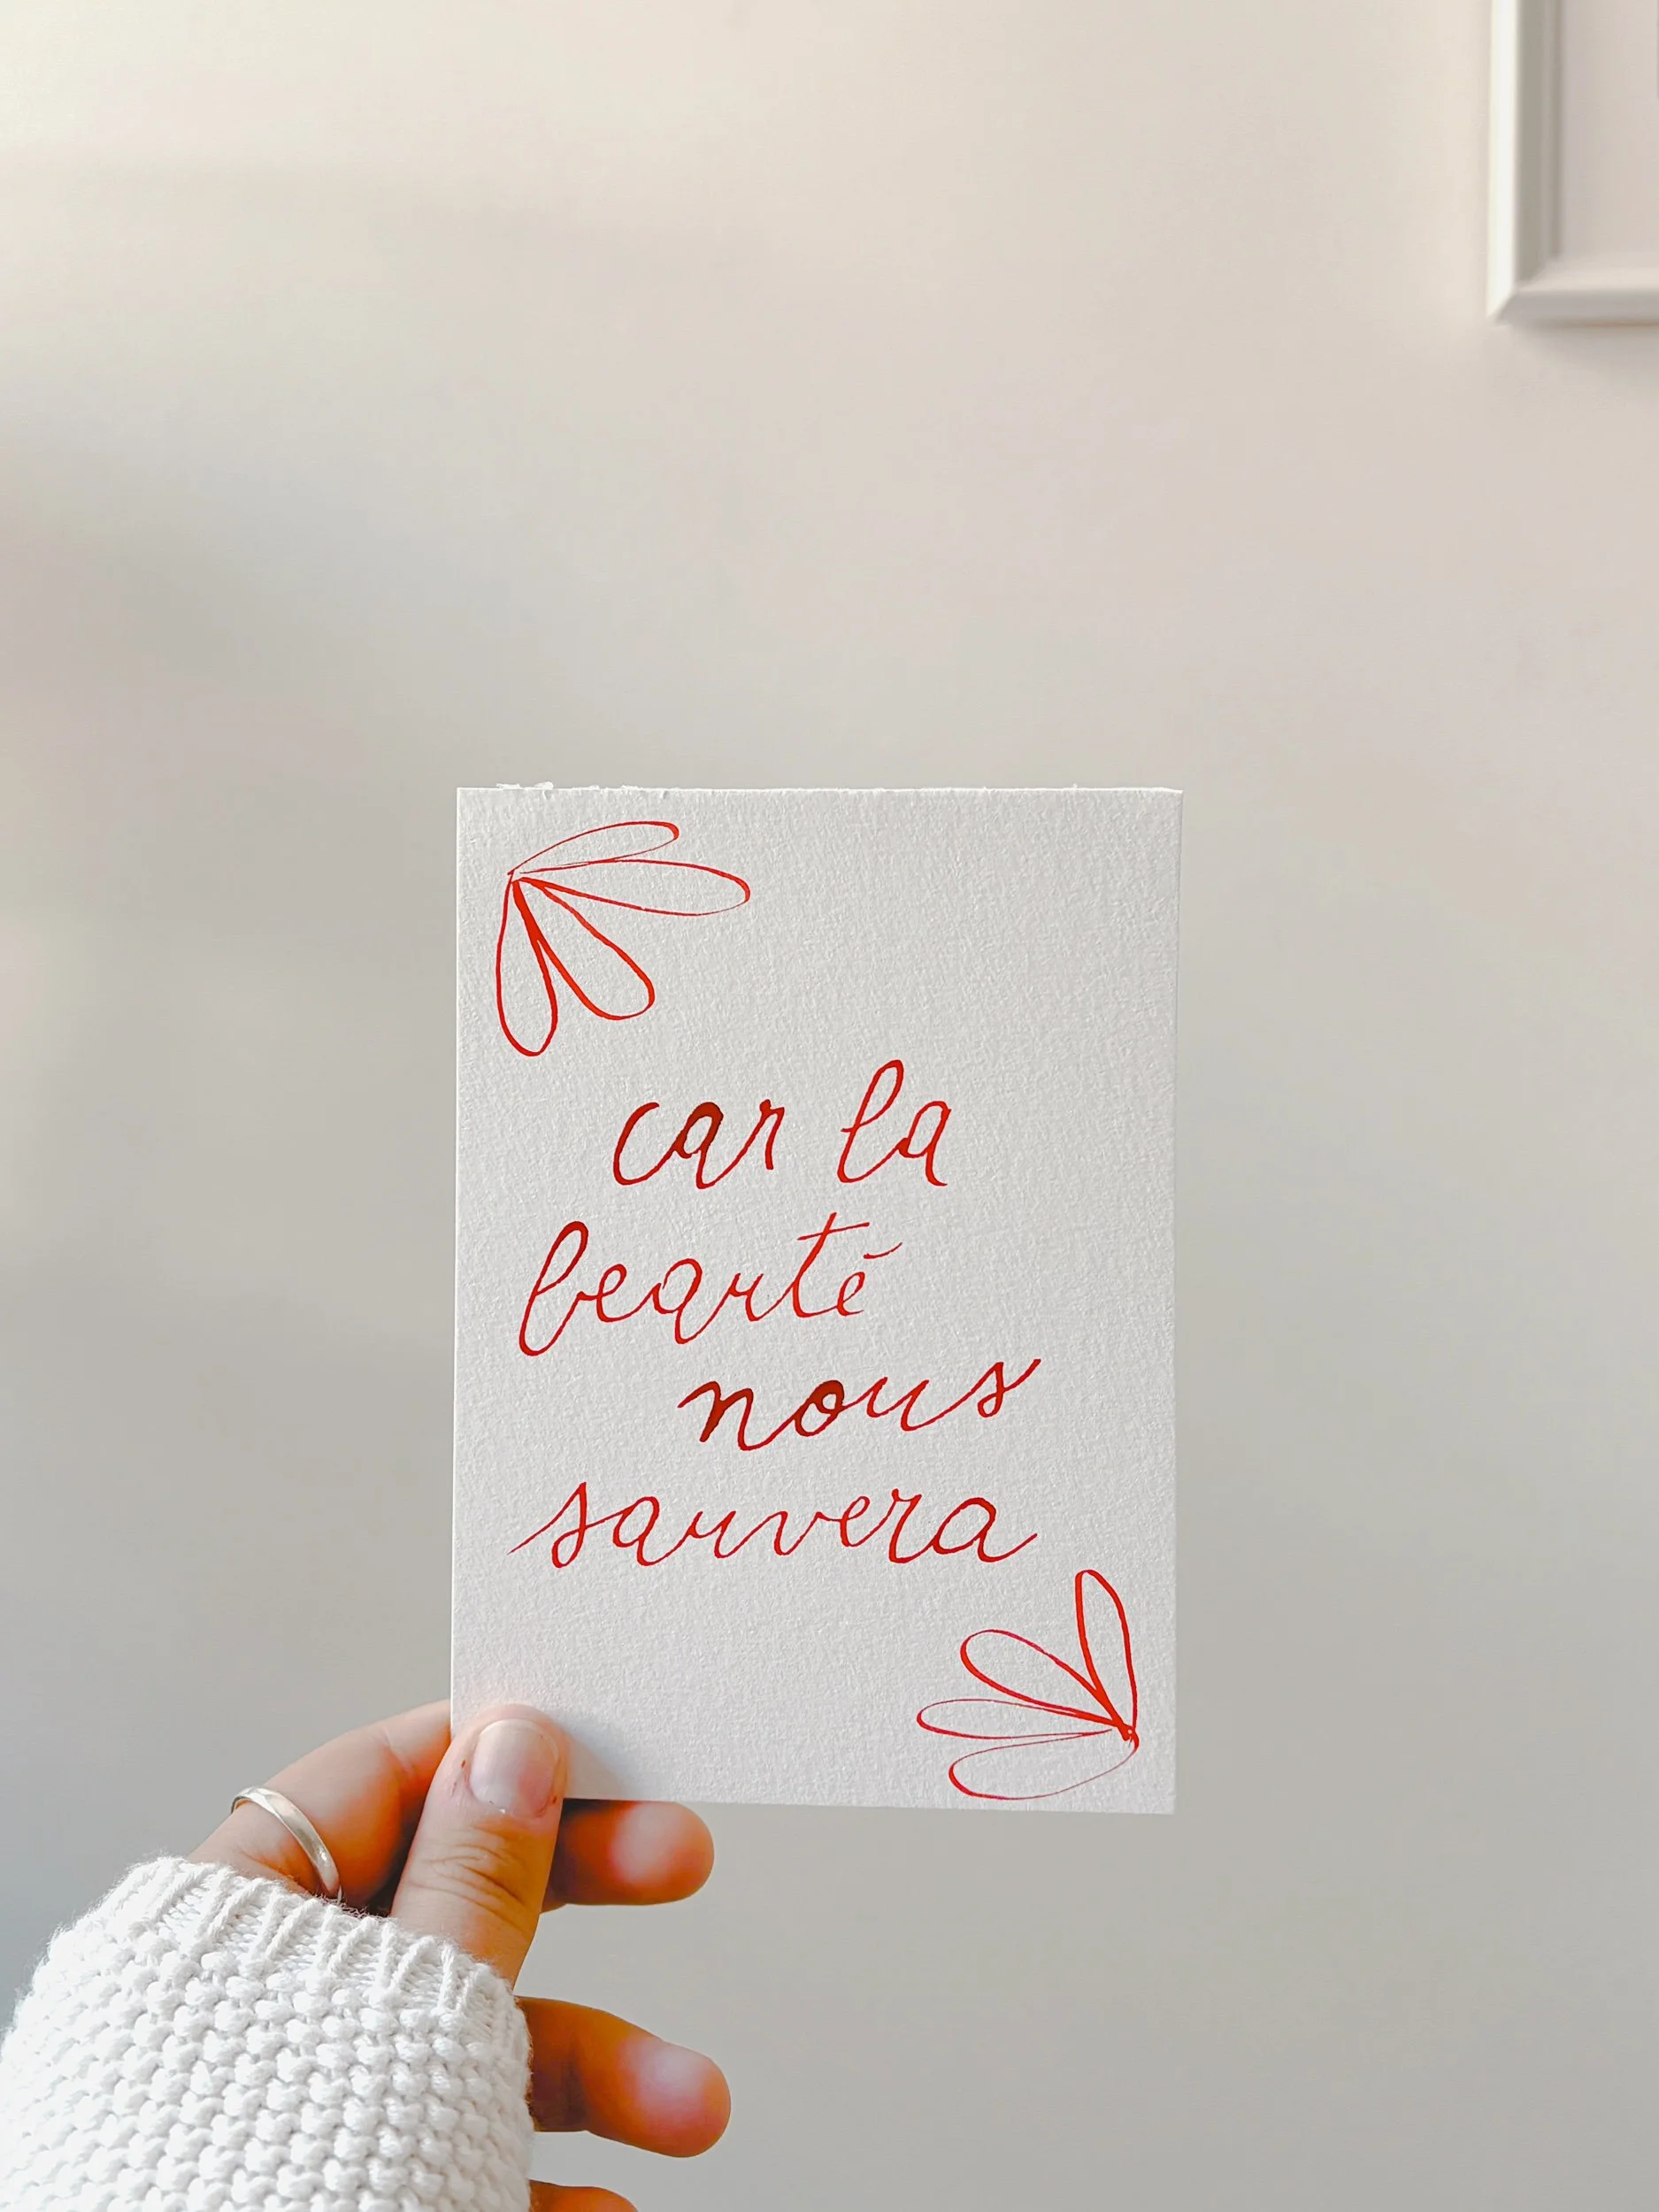 car la
beauté
nous
sauvera